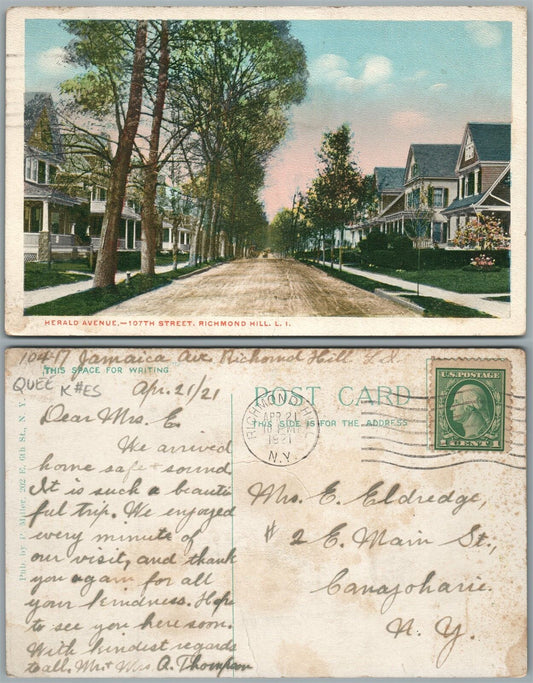 HERALD AVENUE.—107TH STREET. RICHMOND HILL. L. I.
10447 Jamaica Ave. Richmond Hill L I
THIS SPACE FOR WRITING
QUEE
K#ES
Apr. 21/21
Dear Mrs. E.
We arrived
home safe + sound
It is such a beauti
ful trip. We enjoyed
every minute of
our visit, and thank
you again for all
your kindness. Hope
to see you here soon.
With kindest regards
to all. Mr + Mrs A. Thompson
Pub. by P. Miller, 202 E. 6th St., N. Y.
POST CARD
THIS SIDE IS FOR THE ADDRESS
RICHMOND HILL
APR 21
1921
N.Y.
U.S. POSTAGE
1 CENT 1
Mrs. E. Eldredge,
# 2 E. Main St.,
Canajoharie.
N. Y.